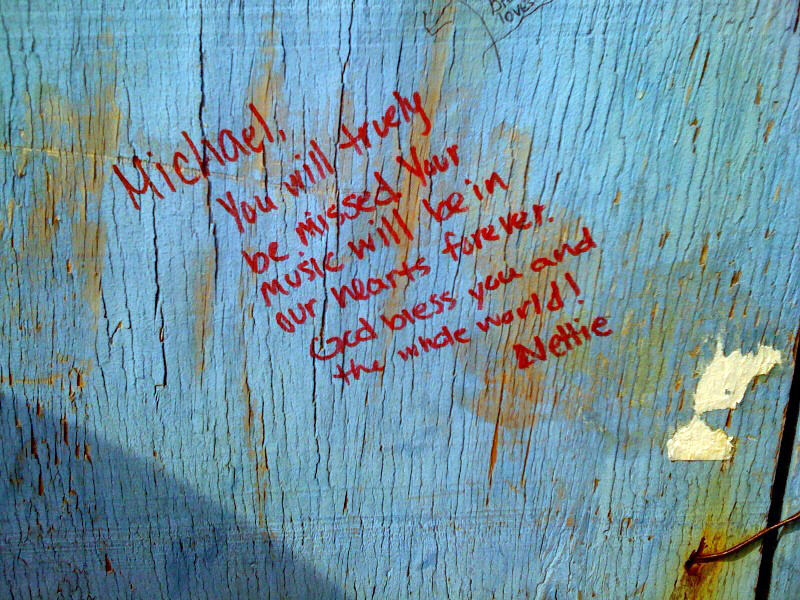 loves
Michael,
You will truely
be missed. Your
music will be in
our hearts forever.
God bless you and
the whole world!
Nettie